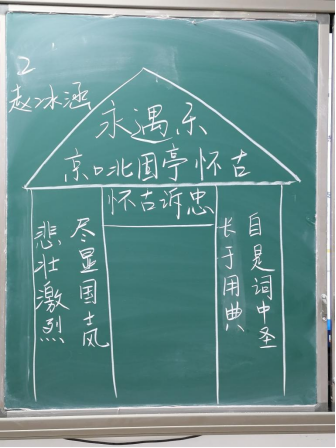 2
赵冰涵
永遇乐
京口北固亭怀古
怀古诉忠
自是词中圣
长于用典
尽显国士风
悲壮激烈